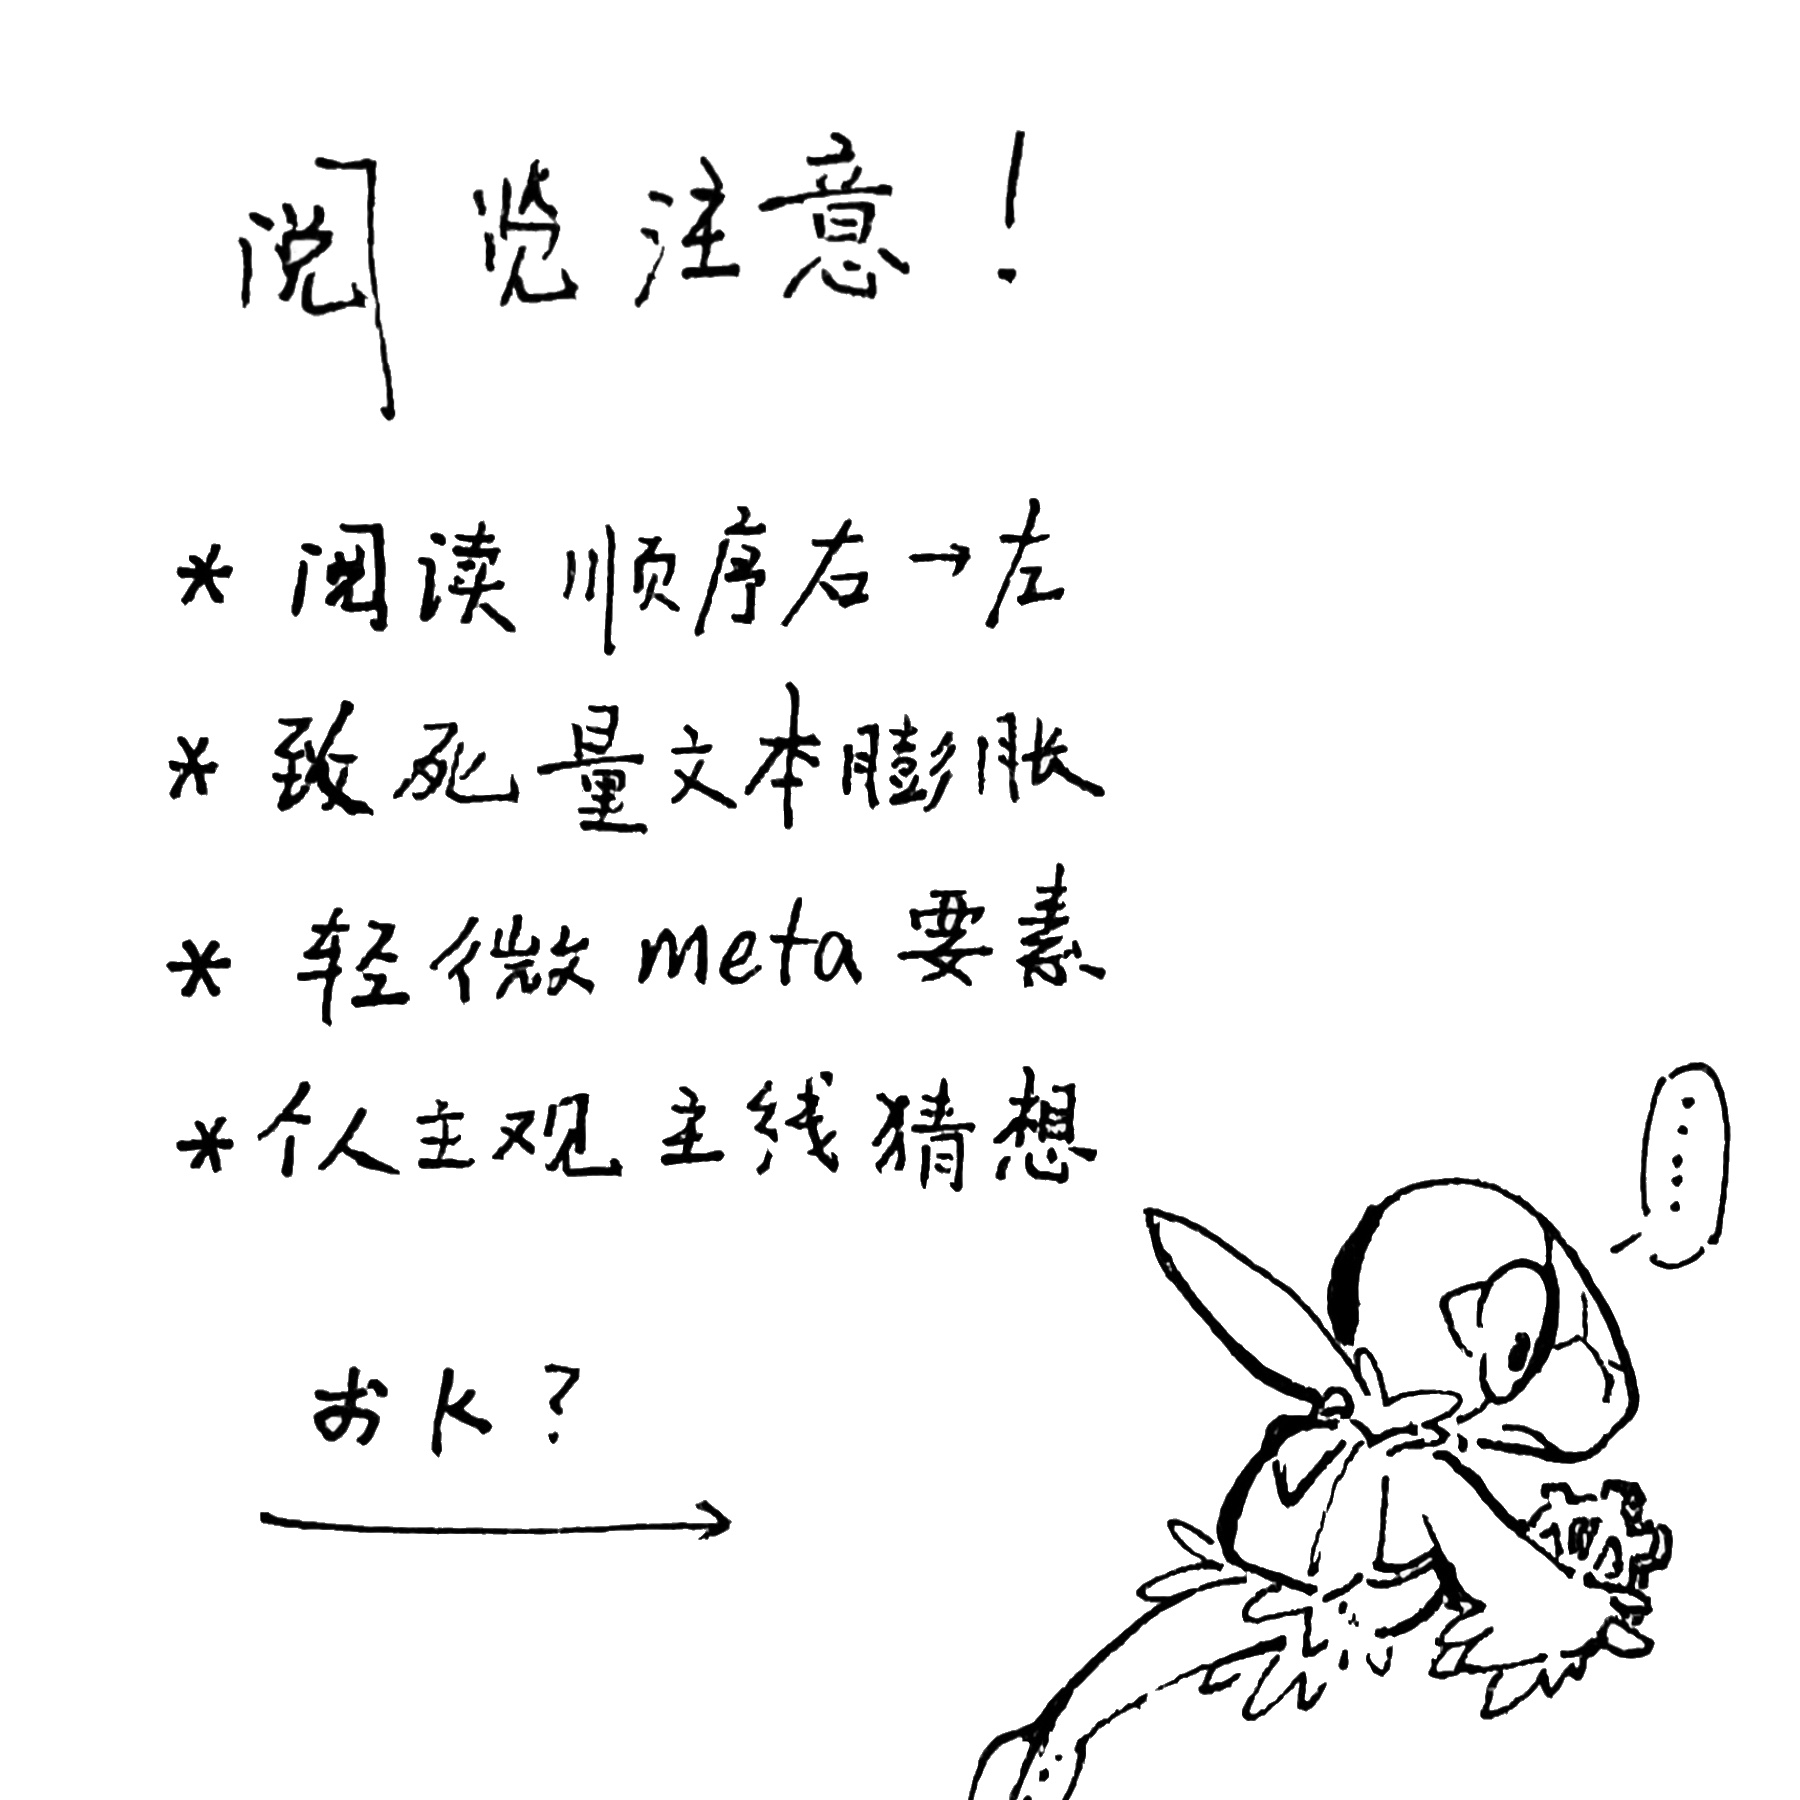 阅览注意!
* 阅读顺序右→左
* 致死量文本膨胀
* 轻微meta要素
* 个人主观主线猜想
おk?
……